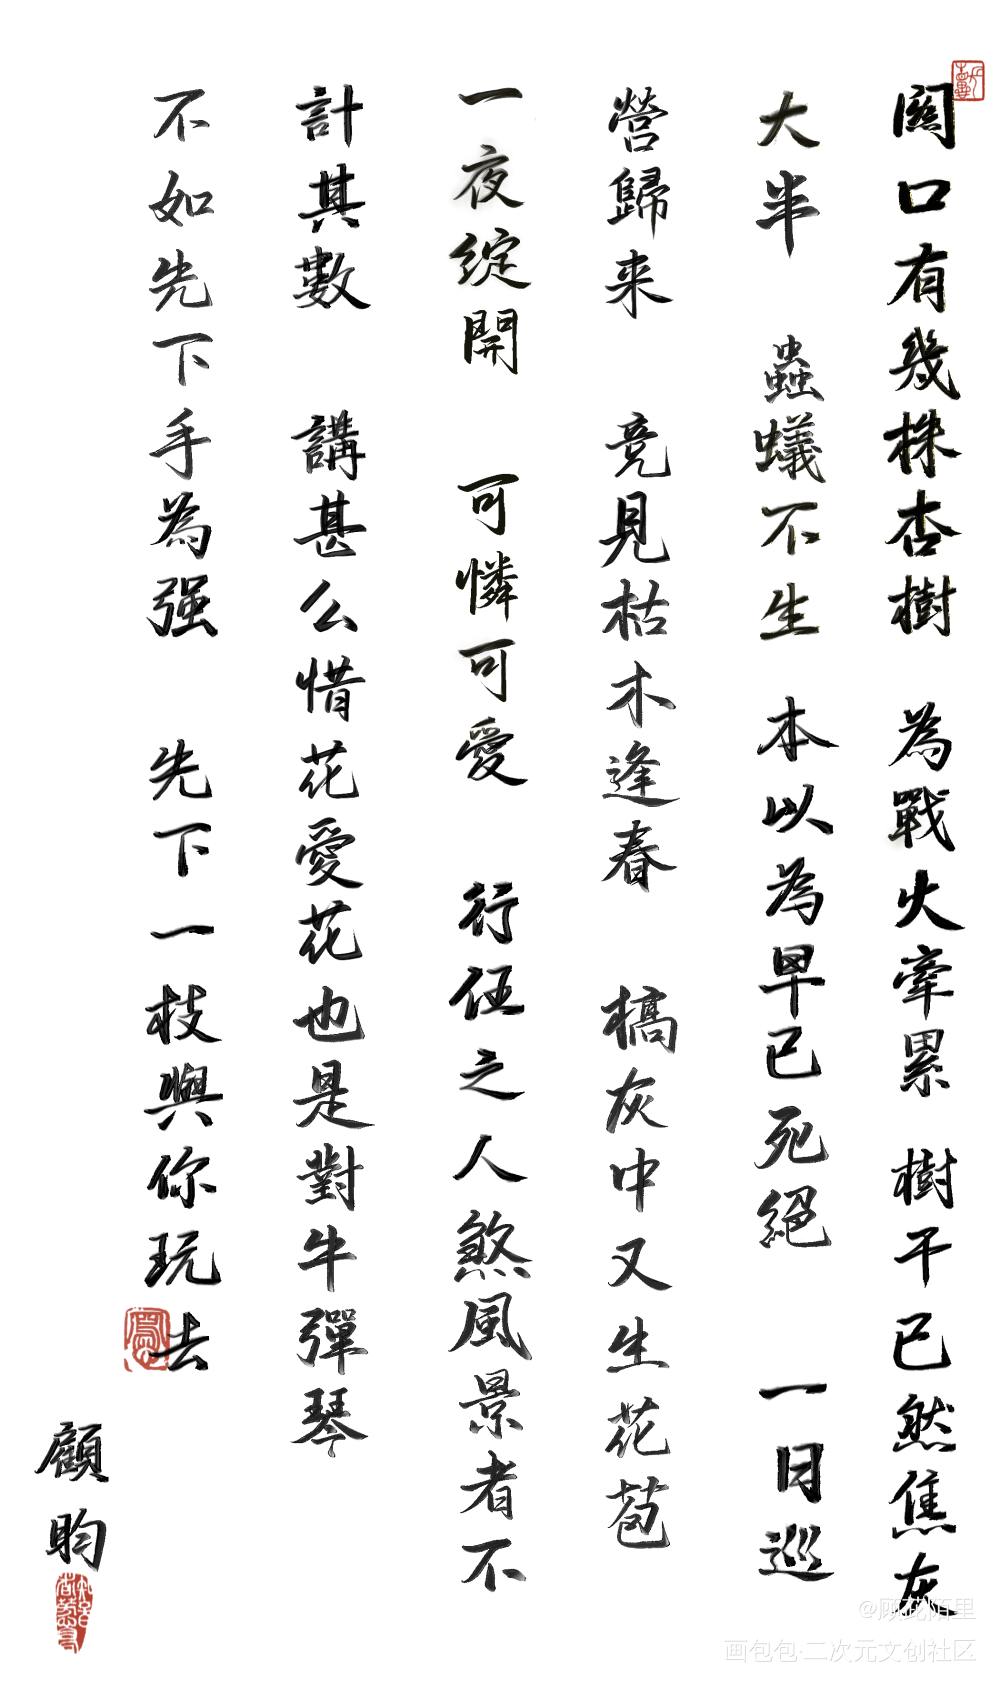 關口有幾株杏樹 為戰火牽累 樹干已然焦灰
大半 蟲蟻不生 本以為早已死絕 一日巡
營歸来 竞見枯木逢春 槁灰中又生花苞
一夜綻開 可憐可愛 行伍之人煞風景者不
計其數 講甚么惜花愛花也是對牛彈琴
不如先下手為强 先下一枝與你玩去
顧昀
@顾茂陌里
画包包·二次元文创社区